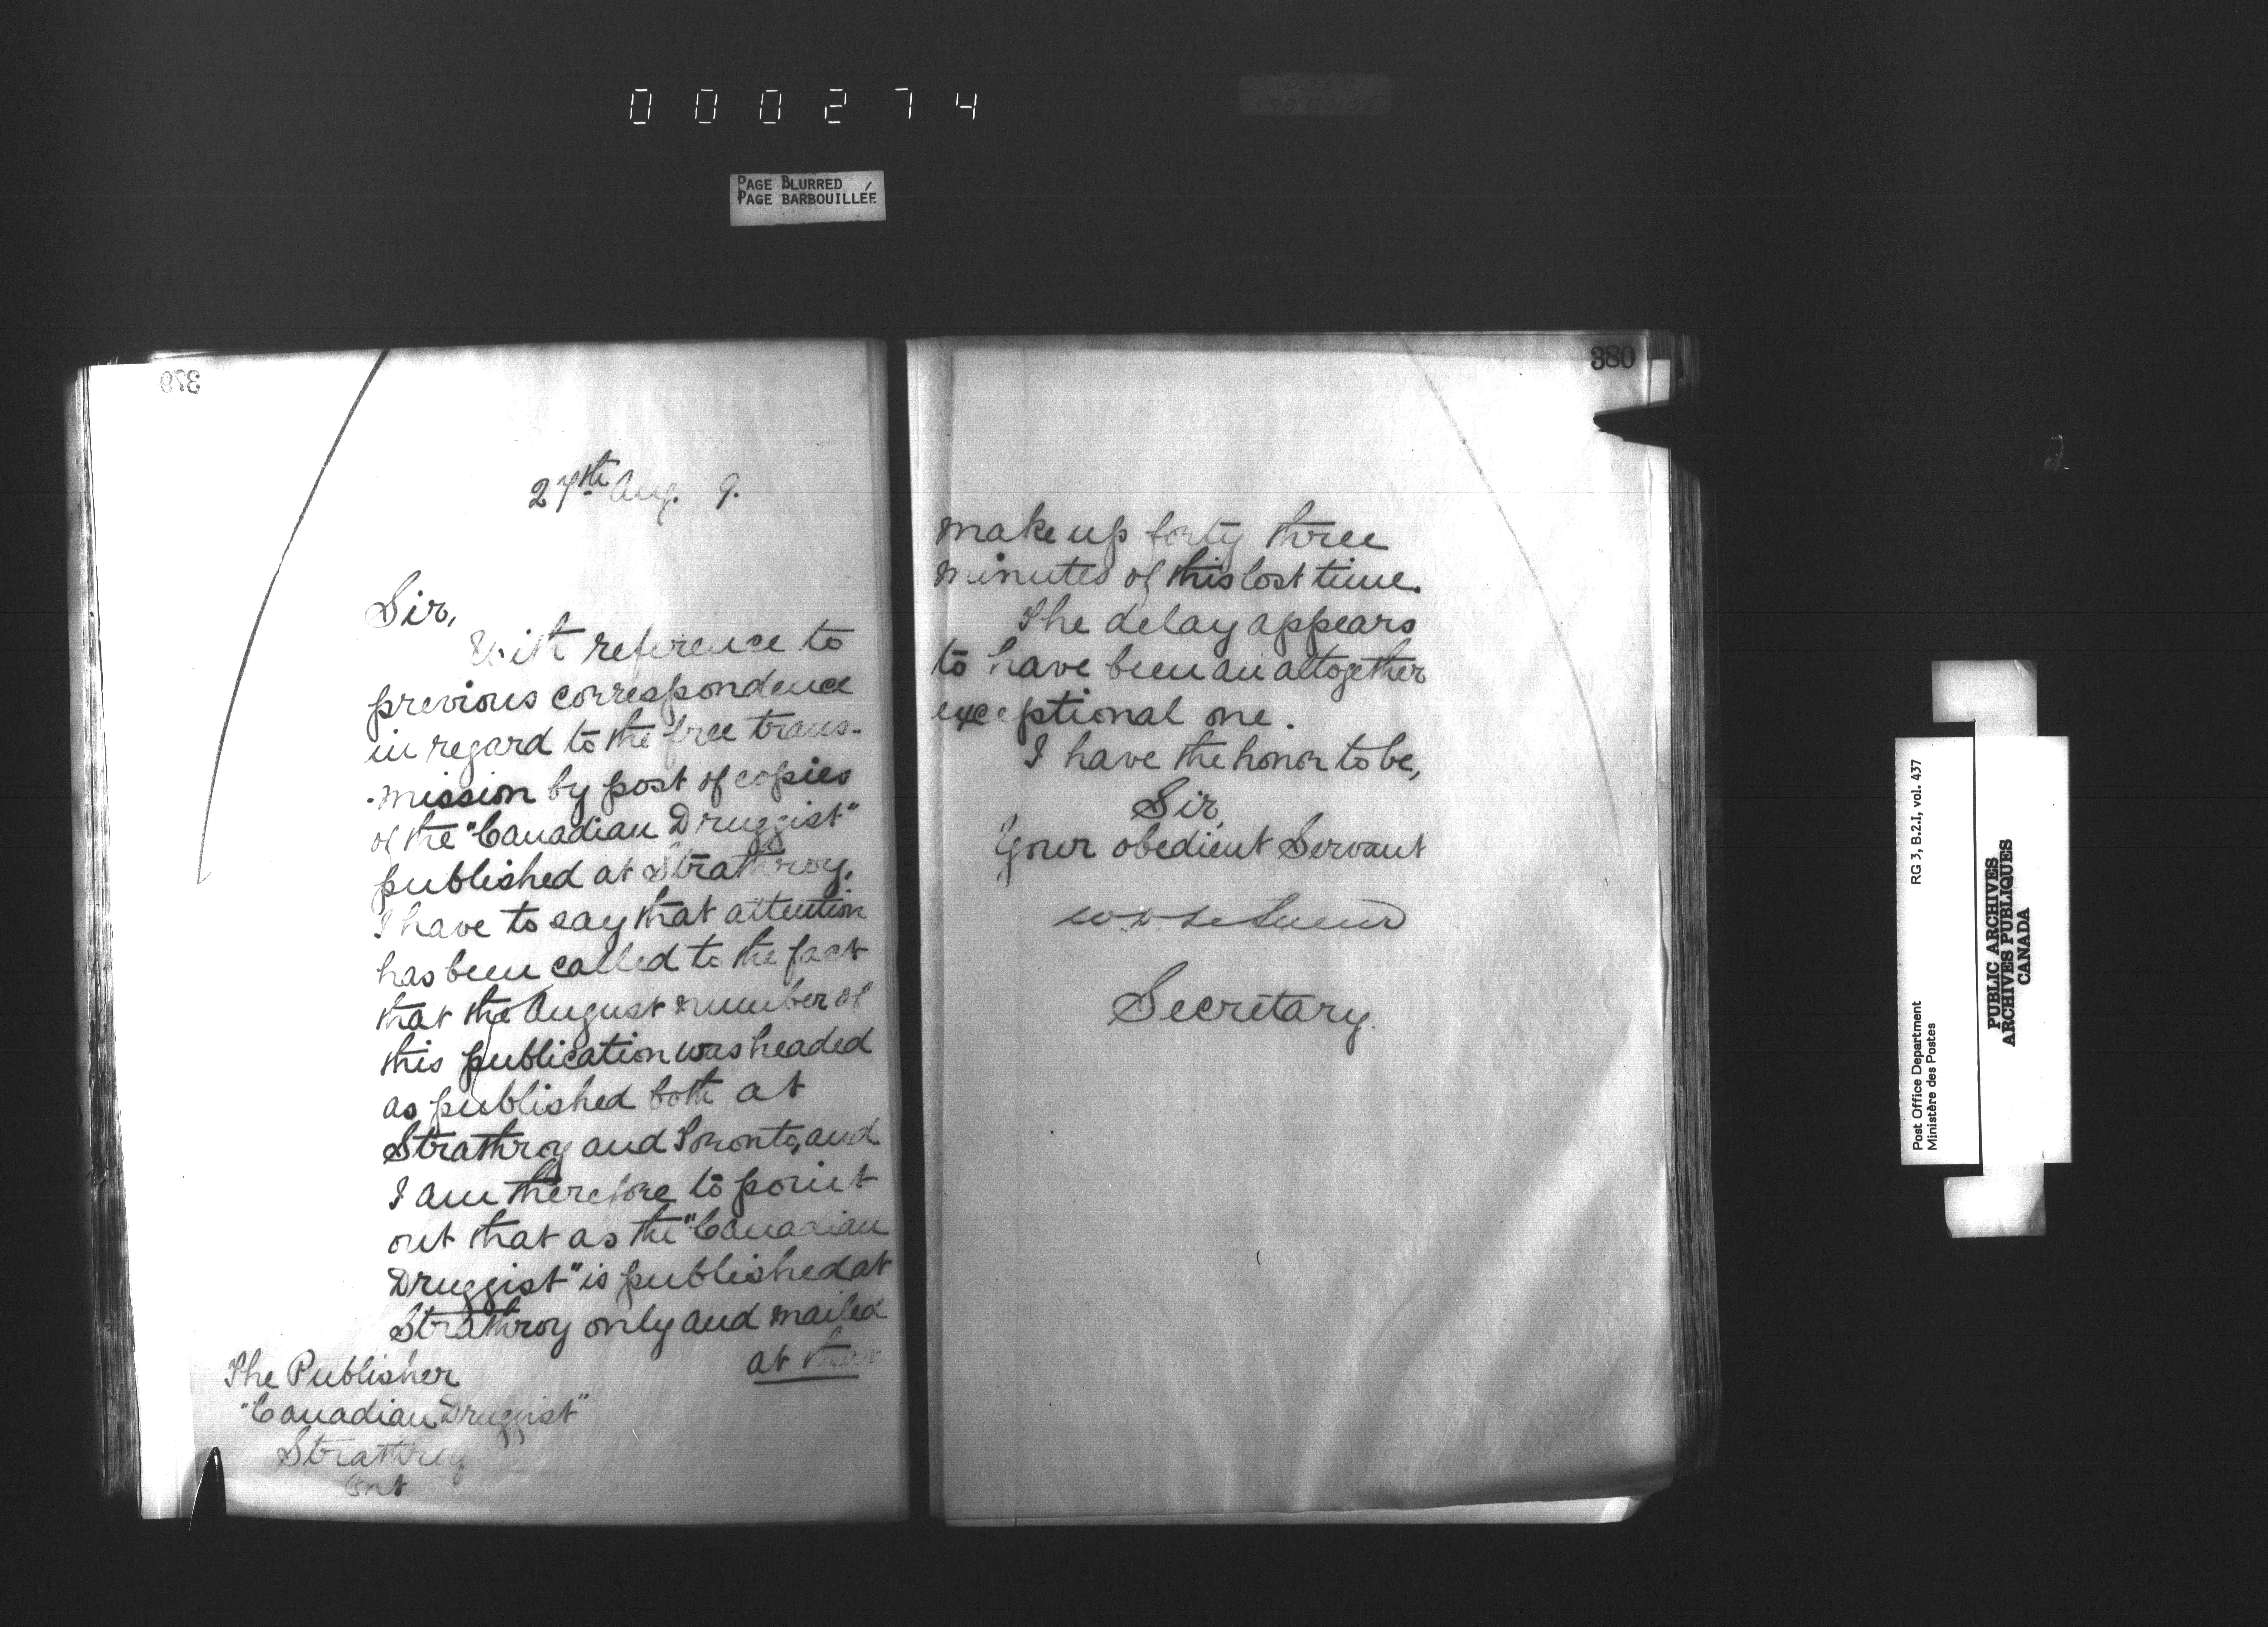 000274
PAGE BLURRED
PAGE BARBOUILLÉE
379
27th Aug. 9.
Sir,
With reference to
previous correspondence
in regard to the free trans-
-mission by post of copies
of the "Canadian Druggist"
published at Strathroy,
I have to say that attention
has been called to the fact
that the August number of
this publication was headed
as published both at
Strathroy and Toronto, and
I am therefore to point
out that as the "Canadian
Druggist" is published at
Strathroy only and mailed
at that
The Publisher
"Canadian Druggist"
Strathroy
Ont
380
make up forty three
minutes of this lost time.
The delay appears
to have been an altogether
exceptional one.
I have the honor to be,
Sir,
Your obedient Servant
W. D. LeSueur
Secretary.
2
Post Office Department
Ministère des Postes
RG 3, B.2.I, vol. 437
PUBLIC ARCHIVES
ARCHIVES PUBLIQUES
CANADA